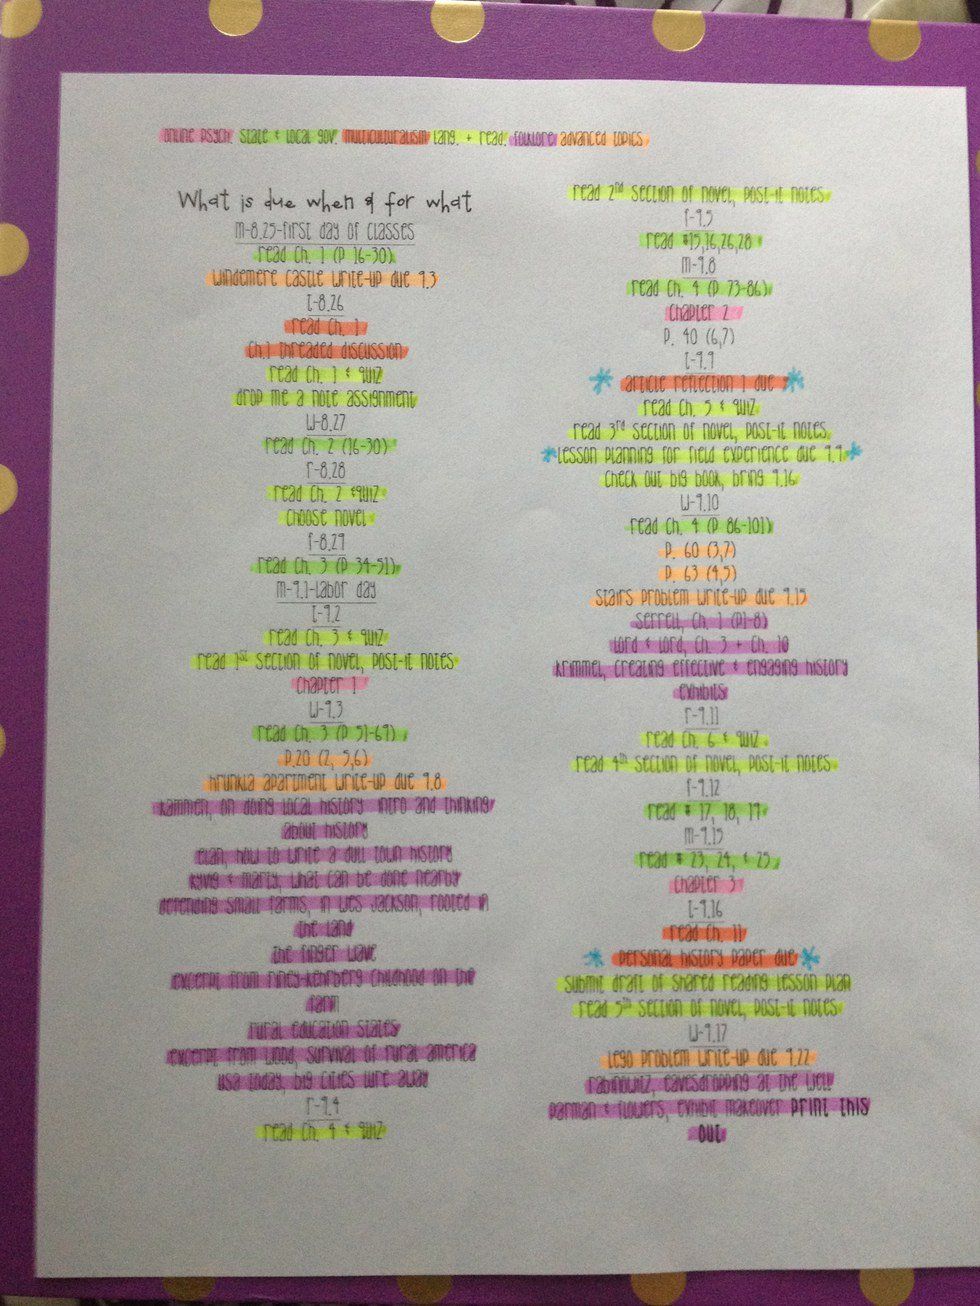 online psych. state & local gov. multiculturalism lang. + read. folklore advanced topics
What is due when & for what
m-8.25-first day of classes
read Ch. 1 (p 16-30)
windemere castle write-up due 9.3
t-8.26
read Ch. 1
Ch.1 threaded discussion
read Ch. 1 & quiz
drop me a note assignment
W-8.27
read Ch. 2 (16-30)
r-8.28
read Ch. 2 &quiz
Choose novel
f-8.29
read Ch. 3 (p 34-51)
m-9.1-labor day
t-9.2
read Ch. 3 & quiz
read 1st section of novel, post-it notes
Chapter 1
W-9.3
read Ch. 3 (p 51-69)
p.20 (2, 5,6)
hrunkla apartment write-up due 9.8
kammen, on doing local history intro and thinking
about history
how to write a dull town history
kyvig & marty, what can be done nearby
defending small farms, in wes jackson, rooted in
the land
the finger wave
excerpt from riney-kehrberg childhood on the
farm
rural education states
excerpt from wood, survival of rural america
usa today, big cities lure away
r-9.4
read Ch. 4 & quiz
read 2nd section of novel, post-it notes
f-9.5
read #15,16,26,28
m-9.8
read Ch. 4 (p 73-86)
Chapter 2
p. 40 (6,7)
t-9.9
article reflection 1 due
read Ch. 5 & quiz
read 3rd section of novel, post-it notes
lesson planning for field experience due 9.9
Check out big book, bring 9.16
W-9.10
read Ch. 4 (p 86-101)
p. 60 (3,7)
p. 63 (4,5)
stairs problem write-up due 9.15
serrell, Ch. 1 (p1-8)
lord & lord, Ch. 3 + Ch. 10
krimmel, creating effective & engaging history
exhibits
r-9.11
read Ch. 6 & quiz
read 4th section of novel, post-it notes
f-9.12
read # 17, 18, 19
m-9.15
read # 23, 24, & 25
Chapter 3
t-9.16
read Ch. 11
personal history paper due
submit draft of shared reading lesson plan
read 5th section of novel, post-it notes
W-9.17
lego problem write-up due 9.22
rabinowitz, eavesdropping at the well
parman & flowers, exhibit makeover print this
out